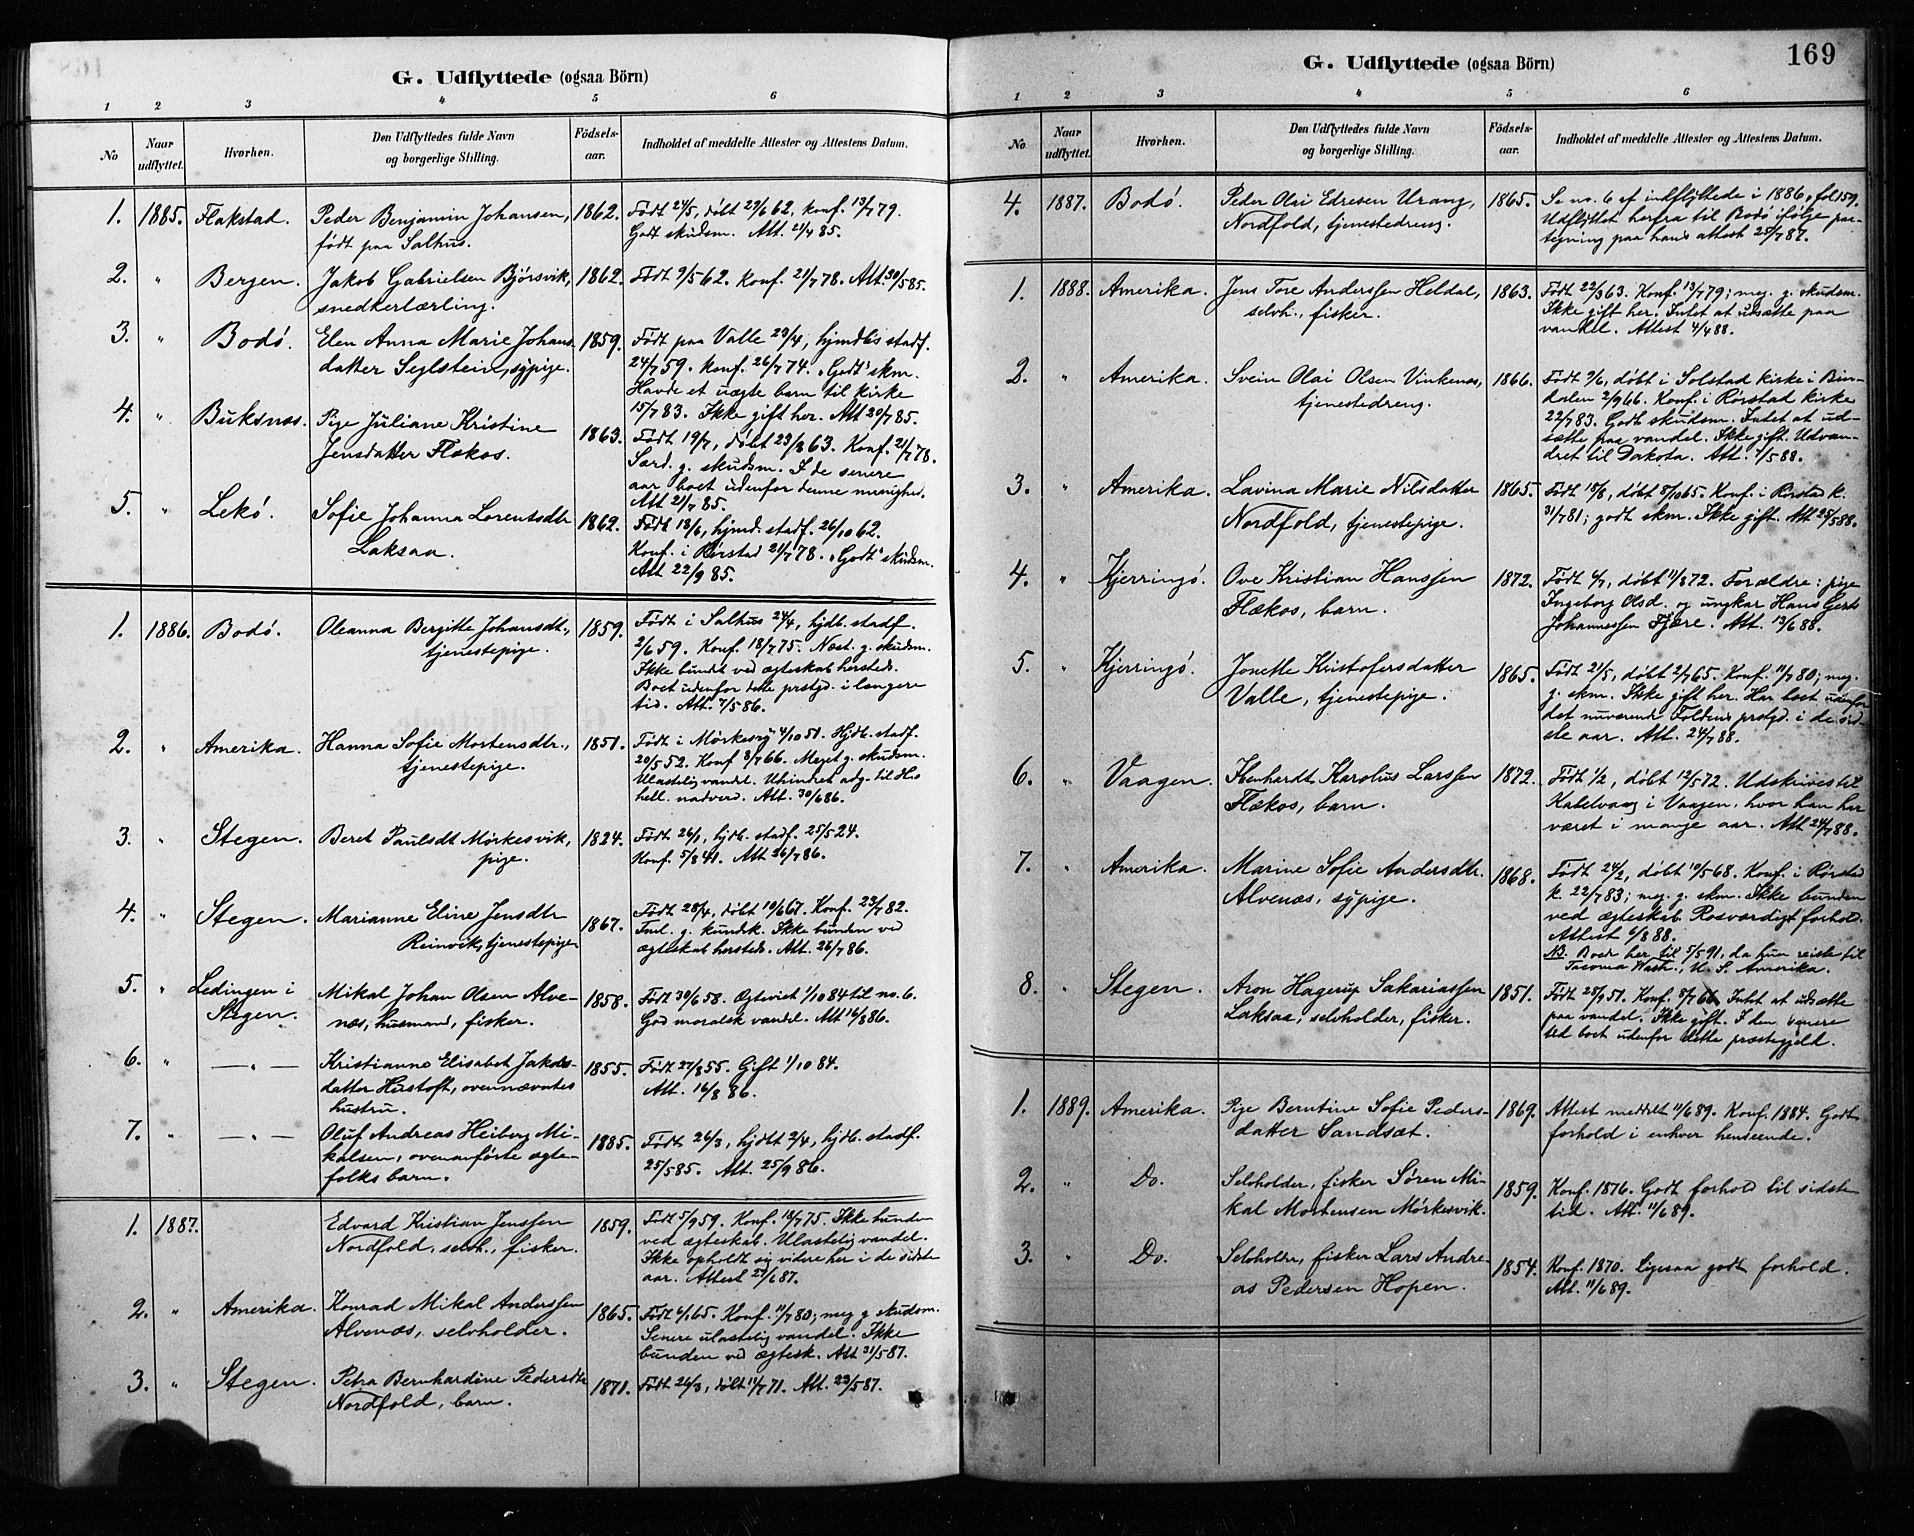 G. Udflyttede (ogsaa Börn)
1 2 3 4 5 6
No
Naar udflyttet.
Hvorhen.
Den Udflyttedes fulde Navn
og borgerlige Stilling.
Födsels-
aar.
Indholdet af meddelte Attester og Attestens Datum.
1. 1885. Flakstad. Peder Benjamin Johansen, 1862. Født 24/5, døbt 29/6 62, konf. 13/7 79.
født paa Salhus. Godt skudsm. Att. 2/4 85.
2. " Bergen. Jakob Gabrielsen Bjørsvik, 1862. Født 9/5 62. Konf. 21/7 78. Att. 30/5 85.
snedkerlærling.
3. " Bodö. Elen Anna Marie Johans- 1859. Født paa Valle 23/4, hjmdbs stadf.
datter Seglstein, sypige. 24/7 59. Konf. 26/7 74. "Godt" skm.
Havde et uægte barn til kirke
15/7 83. Ikke gift her. Att 20/7 85.
4. " Buksnæs. Pige Juliane Kristine 1863. Født 19/7, døbt 23/8 63. Konf. 21/7 78.
Jensdatter Flækos. Særd. g. skudsm. I de senere
aar boet udenfor denne menighed.
Att 21/7 85.
5. " Lekö. Sofie Johanna Lorentsdtr 1862. Født 18/6, hjmd. stadf. 26/10 62.
Laksaa. Konf. i Rörstad 21/7 78. "Godt" skudsm.
Att 22/9 85.
1. 1886. Bodö. Oleanna Bergitte Johansdt., 1859. Født i Salhus 24/4, hjdb. stadf.
tjenestepige. 2/6 59. Konf. 18/7 75. Næst. g. skudsm.
Ikke bundet ved ægteskab hersteds.
Boet udenfor dette prstgd. i længere
tid. Att. 7/5 86.
2. " Amerika. Hanna Sofie Mortensdtr., 1851. Født i Mörkesvig 4/10 51. Hjdb. stadf.
tjenestepige. 20/5 52. Konf 8/7 66. Meget g. skudsm.
Ulastelig vandel. Uhindret adg. til H's
hell. nadverd. Att. 30/6 86.
3. " Stegen. Beret Paulsdt Mörkesvik, 1824. Født 26/1, hjdb. stadf. 25/5 24.
pige. Konf. 5/8 41. Att 26/7 86.
4. " Stegen. Marianne Eline Jensdtr 1867. Født 28/4, døbt 10/6 67. Konf. 23/7 82.
Reinvik, tjenestepige. g. kundsk. Ikke bunden ved
ægteskab hersteds. Att. 26/7 86.
5. " Ledingen i Mikal Johan Olsen Alve- 1858. Født 30/6 58. Ægteviet 1/10 84 til no. 6.
Stegen. næs, husmand, fisker. God moralsk vandel. Att 16/8 86.
6. " — " — Kristianne Elisabet Jakobs- 1855. Født 27/8 55. Gift 1/10 84.
datter Hustoft, ovennævntes Att. 16/8 86.
hustru.
7. " — " — Oluf Andreas Heiberg Mi- 1885. Født 26/3, hjdbt 2/4, hjdb. stadf.
kalsen, ovenanförte ægte- 25/5 85. Att. 25/9 86.
folks barn.
1. 1887. Edvard Kristian Jenssen 1859. Født 5/9 59. Konf. 18/7 75. Ikke bunden
Nordfold, selvh., fisker. ved ægteskab. Ulastelig vandel.
Ikke opholdt sig videre her i de sidste
aar. Attest 27/6 87.
2. " Amerika. Konrad Mikal Anderssen 1865. Født 6/1 65. Konf. 11/7 80; meg g skudsm.
Alvenæs, selvholder. Senere ulastelig vandel. Ikke
bunden ved ægtesk. Att 31/5 87.
3. " Stegen. Petra Bernhardine Pedersdtr 1871. Født 26/3, døbt 11/7 71. Att. 23/5 87.
Nordfold, barn.
G. Udflyttede (ogsaa Börn)
169
1 2 3 4 5 6
No
Naar udflyttet.
Hvorhen.
Den Udflyttedes fulde Navn
og borgerlige Stilling.
Födsels-
aar.
Indholdet af meddelte Attester og Attestens Datum.
4. 1887. Bodö. Peder Olai Edresen Urang, 1865. Se no. 6 af indflyttede i 1886, fol 159.
Nordfold, tjenestedreng. Udflyttet herfra til Bodö ifölge paa-
tegning paa hans attest 25/7 87.
1. 1888. Amerika. Jens Tore Anderssen Heldal, 1863. Født 22/3 63. Konf. 13/7 79; meg. g. skudsm.
selvh., fisker. Ikke gift her. Intet at udsætte paa
vandel. Attest 4/4 88.
2. " Amerika. Svein Olai Olsen Vinkenes, 1866. Født 9/6, døbt i Solstad kirke i Bin-
tjenestedreng. dalen 2/9 66. Konf. i Rörstad kirke
22/7 83. Godt skudsm. Intet at ud-
sætte paa vandel. Ikke gift. Udvan-
dret til Dakota. Att. 1/5 88.
3. " Amerika. Lavina Marie Nilsdatter 1865. Født 18/8, døbt 8/10 65. Konf. i Rörstad k.
Nordfold, tjenestepige. 31/7 81; godt skm. Ikke gift. Att 25/5 88.
4. " Kjerringö. Ove Kristian Hanssen 1872. Født 6/7, døbt 11/8 72. Forældre: pige
Flækos, barn. Ingeborg Olsd. og ungkar Hans Gerts
Johannessen Fjære. Att. 13/6 88.
5. " Kjerringö. Jonette Kristofersdatter 1865. Født 21/5, døbt 2/7 65. Konf. 11/7 80; meg.
Valle, tjenestepige. g. skm. Ikke gift her. Har boet udenfor
det nuværende Foldens prstgd. i de sid-
ste aar. Att. 24/7 88.
6. " Vaagen. Ebenhardt Karolus Larssen 1872. Født 1/2, døbt 12/5 72. Udskrives til
Flækos, barn. Kabelvaag i Vaagen, hvor han har
været i mange aar. Att 24/7 88.
7. " Amerika. Marine Sofie Andersdtr. 1868. Født 24/2, døbt 10/5 68. Konf. i Rörstad
Alvenæs, sypige. k. 22/7 83; meg. g. skm. Ikke bunden
ved ægteskab. Rosværdigt forhold.
Attest 6/8 88.
NB. Boede her til 5/5 91, da hun reiste til
Tacoma Wash., U. S. Amerika.
8. " Stegen. Aron Hagerup Sakariassen 1851. Født 25/9 51. Konf. 8/7 66. Intet at udsætte
Laksaa, selvholder, fisker. paa vandel. Ikke gift. I den senere
tid boet udenfor dette præstegjeld.
1. 1889. Amerika. Pige Berntine Sofie Peders- 1869. Attest meddelt 11/6 89. Konf. 1884. Godt
datter Sandsæt. forhold i enhver henseende.
2. " Do. Selvholder, fisker Sören Mi- 1859. Konf. 1876. Godt forhold til sidste
kal Mortensen Mörkesvik. tid. Att. 11/6 89.
3. " Do. Selvholder, fisker Lars Andre- 1854. Konf. 1870. Ligesaa godt forhold.
as Pedersen Hopen. Att. 11/6 89.